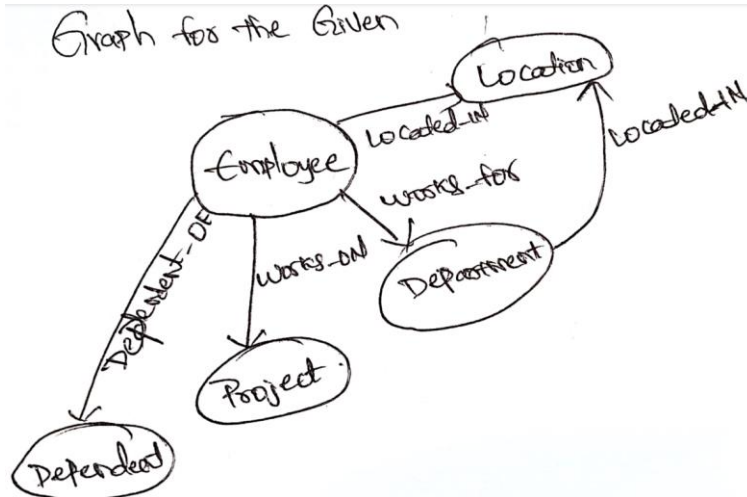 Graph for the Given
Location
Located-IN
Located-IN
Employee
works-for
Department
works-ON
Dependent-OF
Project
Dependent